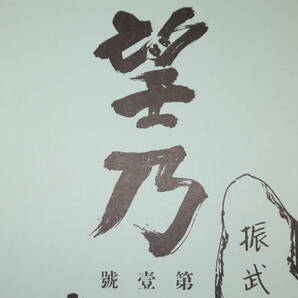 望乃
第壹號
振武